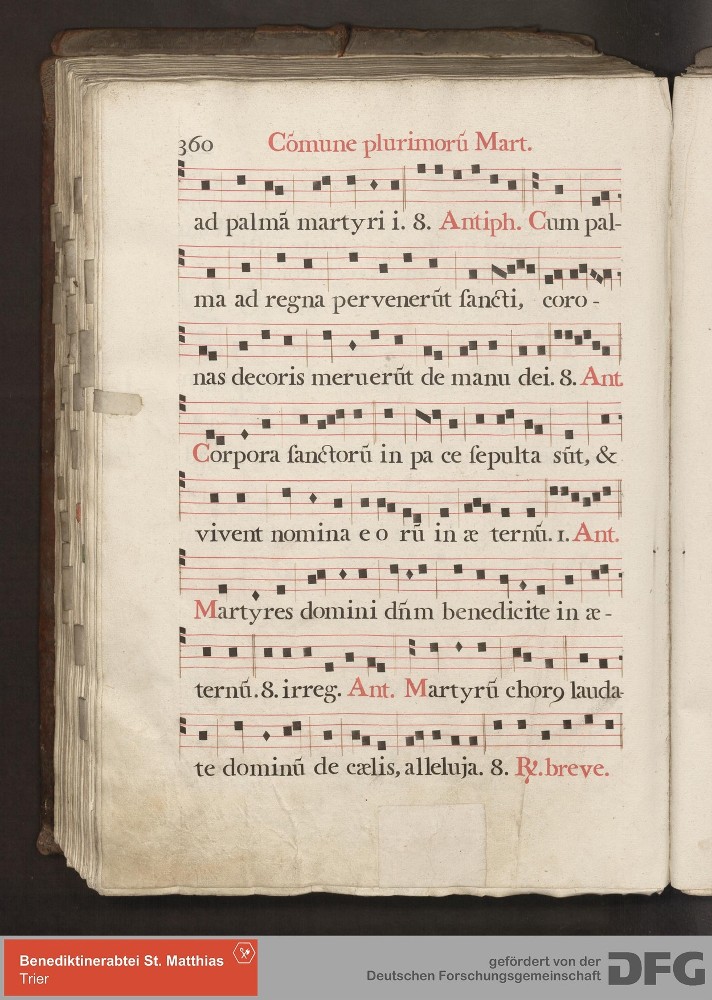 360 Cõmune plurimorũ Mart.
ad palmã martyri i. 8. Antiph. Cum pal-
ma ad regna pervenerũt ſancti, coro-
nas decoris meruerũt de manu dei. 8. Ant.
Corpora ſanctorũ in pa ce ſepulta sũt, &
vivent nomina e o rũ in æ ternũ. 1. Ant.
Martyres domini dñm benedicite in æ-
ternũ. 8. irreg. Ant. Martyrũ chorꝯ lauda-
te dominũ de cælis, alleluja. 8. ℟. breve.
Benediktinerabtei St. Matthias
Trier
gefördert von der
Deutschen Forschungsgemeinschaft
DFG